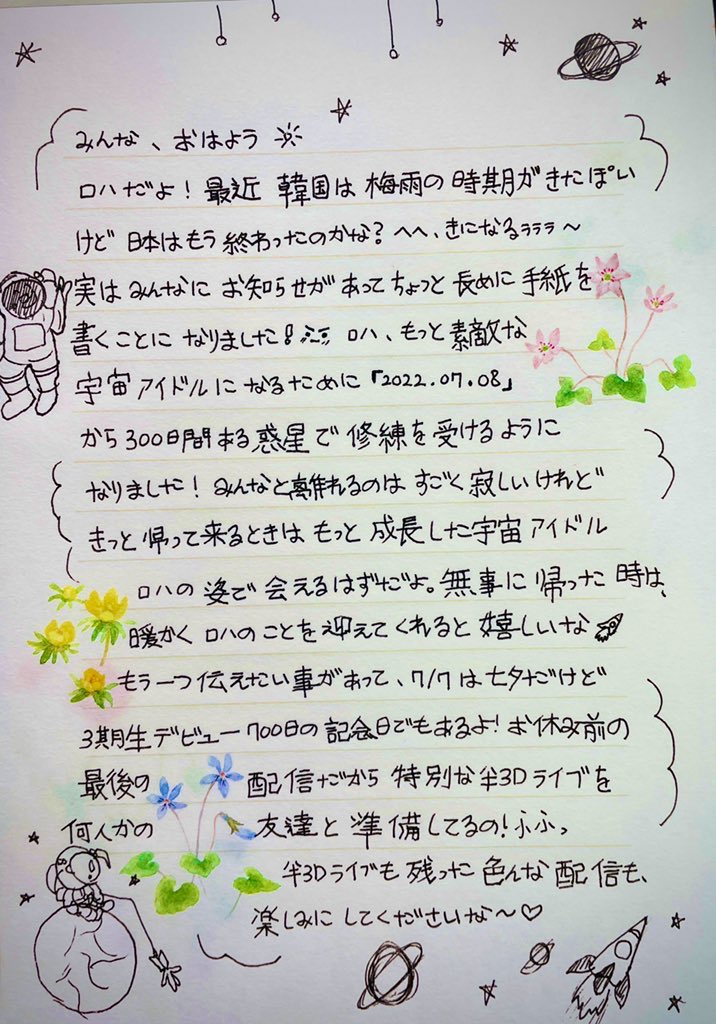 みんな、おはよう
ロハだよ！最近 韓国は 梅雨の 時期が きたぽい
けど 日本は もう 終わったのかな？ へへ、きになるララララ〜
実は みんなに お知らせが あって ちょっと 長めに 手紙を
書くことに なりました！ ロハ、もっと 素敵な
宇宙 アイドルに なるために 「2022.07.08」
から 300日間 ある 惑星で 修練を 受けるように
なりました！ みんなと 離れるのは すごく 寂しいけれど
きっと 帰って 来るときは もっと 成長した 宇宙 アイドル
ロハの 姿で 会えるはずだよ。無事に 帰った 時は、
暖かく ロハの ことを 迎えて くれると 嬉しいな
もう一つ 伝えたい 事が あって、7/7 は 七夕だけど
3期生 デビュー 700日の 記念日でもあるよ！ お休み前の
最後の 配信だから 特別な 半3D ライブを
何人かの 友達と 準備してるの！ ふふっ
半3D ライブも 残った 色んな 配信も、
楽しみに してくださいな〜♡